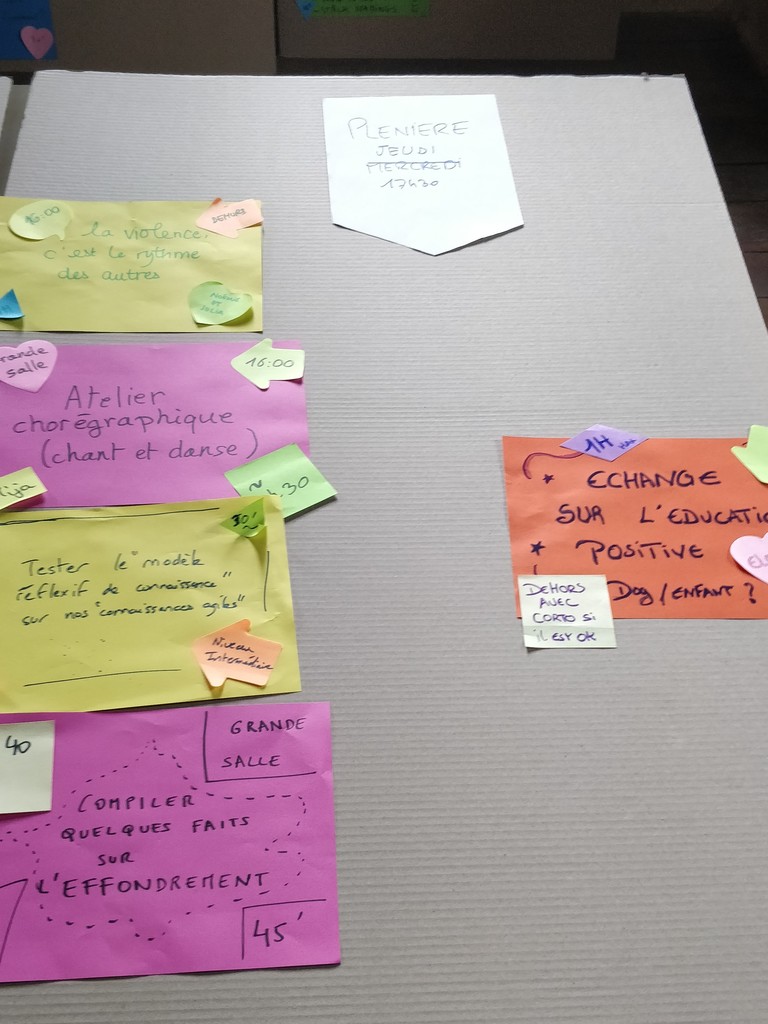 PLENIERE
JEUDI
MERCREDI
17H30
16:00
DEHORS
la violence,
c'est le rythme
des autres
ET
JULIA
rande
salle
16:00
Atelier
chorégraphique
(chant et danse)
ija
~4.30
30'
Tester le "modèle
réflexif de connaissance"
sur nos "connaissances agiles"
Niveau
Intermédiaire
40
GRANDE
SALLE
COMPILER
QUELQUES FAITS
SUR
L'EFFONDREMENT
45'
1H MAX
* ECHANGE
SUR L'EDUCATIO
* POSITIVE
Dog/ENFANT ?
DEHORS
AVEC
CORTO SI
iL EST OK